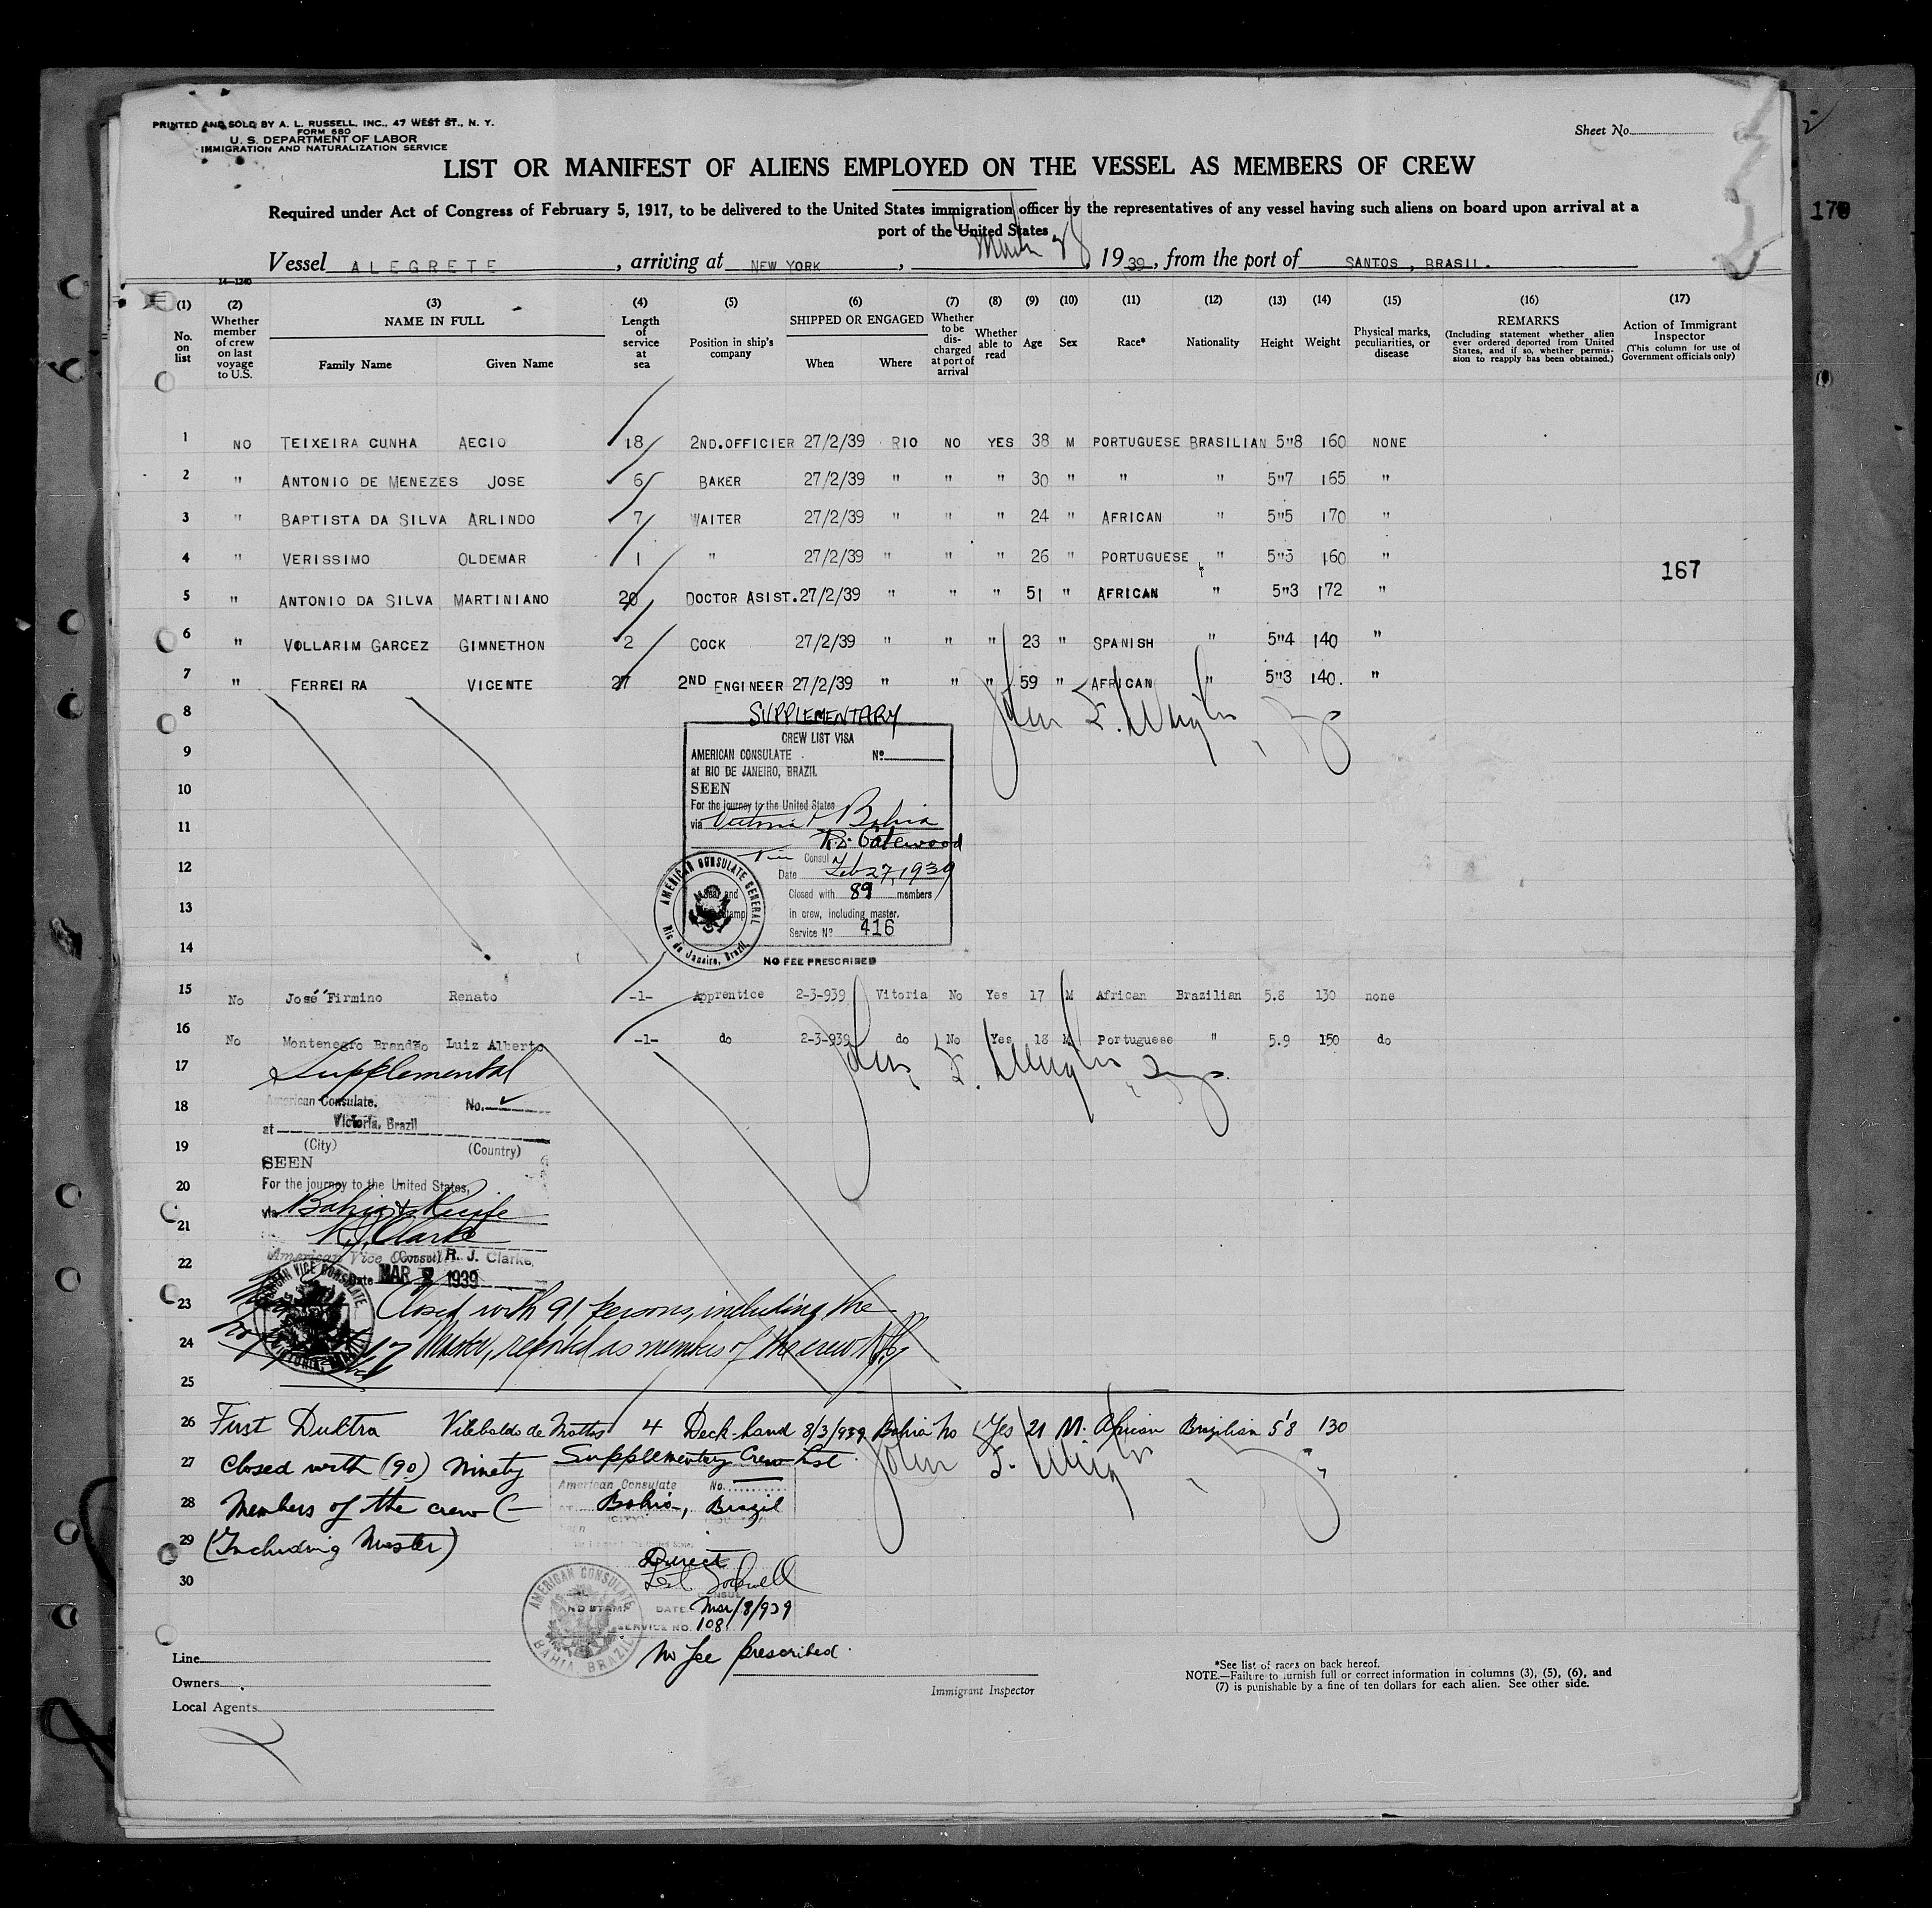 PRINTED AND SOLD BY A. L. RUSSELL, INC., 47 WEST ST., N. Y.
FORM 680
U. S. DEPARTMENT OF LABOR
IMMIGRATION AND NATURALIZATION SERVICE
Sheet No.
LIST OR MANIFEST OF ALIENS EMPLOYED ON THE VESSEL AS MEMBERS OF CREW
Required under Act of Congress of February 5, 1917, to be delivered to the United States immigration officer by the representatives of any vessel having such aliens on board upon arrival at a
port of the United States
170
Vessel ALEGRETE, arriving at NEW YORK, March 28, 1939, from the port of SANTOS, BRASIL.
14—1240
(1) No. on list
(2) Whether member of crew on last voyage to U.S.
(3) NAME IN FULL Family Name Given Name
(4) Length of service at sea
(5) Position in ship's company
(6) SHIPPED OR ENGAGED When Where
(7) Whether to be discharged at port of arrival
(8) Whether able to read
(9) Age
(10) Sex
(11) Race*
(12) Nationality
(13) Height
(14) Weight
(15) Physical marks, peculiarities, or disease
(16) REMARKS (Including statement whether alien ever ordered deported from United States, and if so, whether permission to reapply has been obtained.)
(17) Action of Immigrant Inspector (This column for use of Government officials only)
1 NO TEIXEIRA CUNHA AECIO 18 2ND.OFFICIER 27/2/39 RIO NO YES 38 M PORTUGUESE BRASILIAN 5"8 160 NONE
2 " ANTONIO DE MENEZES JOSE 6 BAKER 27/2/39 " " " 30 " " " 5"7 165 "
3 " BAPTISTA DA SILVA ARLINDO 7 WAITER 27/2/39 " " " 24 " AFRICAN " 5"5 170 "
4 " VERISSIMO OLDEMAR 1 " 27/2/39 " " " 26 " PORTUGUESE " 5"5 160 "
167
5 " ANTONIO DA SILVA MARTINIANO 20 DOCTOR ASIST. 27/2/39 " " " 51 " AFRICAN " 5"3 172 "
6 " VOLLARIM GARCEZ GIMNETHON 2 COCK 27/2/39 " " " 23 " SPANISH " 5"4 140 "
7 " FERREIRA VICENTE 27 2ND ENGINEER 27/2/39 " " " 59 " AFRICAN " 5"3 140. "
8 SUPPLEMENTARY
CREW LIST VISA
9 AMERICAN CONSULATE No
at RIO DE JANEIRO, BRAZIL
10 SEEN
For the journey to the United States
11 via Victoria & Bahia
R.D. Gatewood
12 Consul
Date Feb 27, 1939
Closed with 89 members
13 in crew, including master.
Service No 416
AMERICAN CONSULATE GENERAL
Rio de Janeiro, Brazil
14
NO FEE PRESCRIBED
15 No José Firmino Renato -1- Apprentice 2-3-939 Vitoria No Yes 17 M African Brazilian 5.8 130 none
16 No Montenegro Brandão Luiz Alberto -1- do 2-3-939 do No Yes 18 M Portuguese " 5.9 150 do
17 Supplemental
18 American Consulate. No.
at Victoria, Brazil
19 (City) (Country)
SEEN
20 For the journey to the United States,
via Bahia & Recife
21 R.J. Clarke
22 American Vice Consul R. J. Clarke
Date MAR 2 1939
23 Closed with 91 persons, including the
24 Master, reported as members of the crew
25
26 First Dultra Vilebaldo de Mattos 4 Deck-hand 8/3/939 Bahia No Yes 21 M. African Brazilian 5'8 130
27 Closed with (90) Ninety Supplementary Crew List
28 Members of the crew
American Consulate No.
Bahia, Brazil
29 (Including Master)
Direct
30
CONSUL
DATE Mar/8/939
SERVICE NO. 108
AMERICAN CONSULATE
BAHIA, BRAZIL
No fee prescribed
Line
Owners
Local Agents
Immigrant Inspector
*See list of races on back hereof.
NOTE.—Failure to furnish full or correct information in columns (3), (5), (6), and
(7) is punishable by a fine of ten dollars for each alien. See other side.